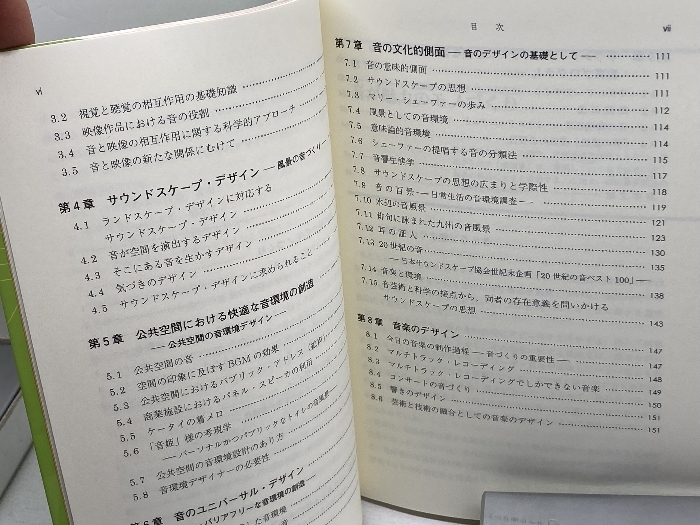 vi
3.2 視覚と聴覚の相互作用の基礎知識
3.3 映像作品における音の役割
3.4 音と映像の相互作用に関する科学的アプローチ
3.5 音と映像の新たな関係にむけて
第4章 サウンドスケープ・デザイン ― 風景の音づくり ―
4.1 ランドスケープ・デザインに対応する
サウンドスケープ・デザイン
4.2 音が空間を演出するデザイン
4.3 そこにある音を生かすデザイン
4.4 気づきのデザイン
4.5 サウンドスケープ・デザインに求められること
第5章 公共空間における快適な音環境の創造
― 公共空間の音環境デザイン ―
5.1 公共空間の音
5.2 空間の印象に及ぼすBGMの効果
5.3 公共空間におけるパブリック・アドレス（拡声）
5.4 商業施設におけるパネル・スピーカの利用
5.5 ケータイの着メロ
5.6 「音姫」様の考現学
― パーソナルかつパブリックなトイレの音風景
5.7 公共空間の音環境設計のあり方
5.8 音環境デザイナーの必要性
第6章 音のユニバーサル・デザイン
バリアフリーな音環境の創造 ―
した音環境
目次
vii
第7章 音の文化的側面 ― 音のデザインの基礎として ― 111
7.1 音の意味的側面 111
7.2 サウンドスケープの思想 111
7.3 マリー・シェーファーの歩み 112
7.4 風景としての音環境 114
7.5 意味論的音環境 114
7.6 シェーファーの提唱する音の分類法 115
7.7 音響生態学 117
7.8 サウンドスケープの思想の広まりと学際性 118
7.9 音の百景 ― 日常生活の音環境調査 ― 119
7.10 水辺の音風景 121
7.11 俳句に詠まれた九州の音風景 123
7.12 耳の証人 130
7.13 20世紀の音 135
― 日本サウンドスケープ協会世紀末企画「20世紀の音ベスト100」―
7.14 音楽と環境 138
7.15 音芸術と科学の接点から，両者の存在意義を問いかける
サウンドスケープの思想 143
第8章 音楽のデザイン 147
8.1 今日の音楽の制作過程 ― 音づくりの重要性 ― 147
8.2 マルチトラック・レコーディング 148
8.3 マルチトラック・レコーディングでしかできない音楽 149
8.4 コンサートの音づくり 150
8.5 響きのデザイン 151
8.6 芸術と技術の融合としての音楽のデザイン 151